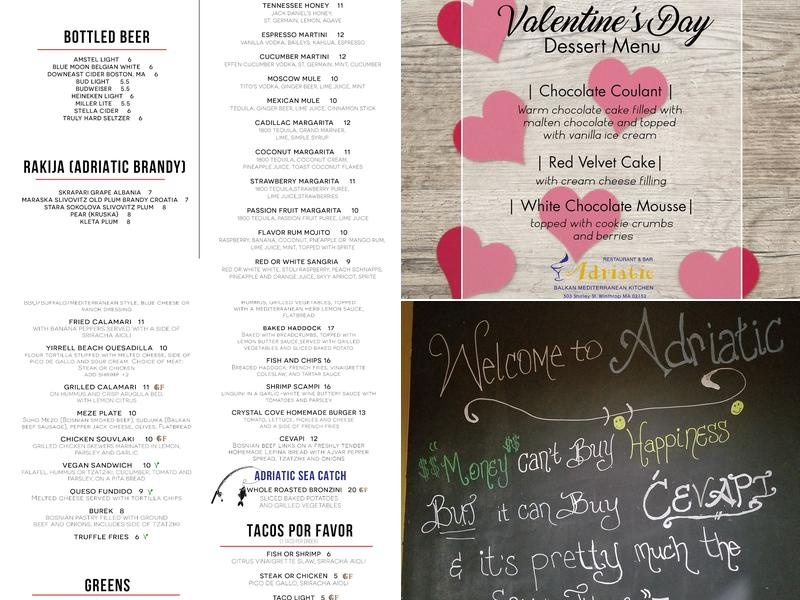 BOTTLED BEER
AMSTEL LIGHT 6
BLUE MOON BELGIAN WHITE 6
DOWNEAST CIDER BOSTON, MA 6
BUD LIGHT 5.5
BUDWEISER 5.5
HEINEKEN LIGHT 6
MILLER LITE 5.5
STELLA CIDER 6
TRULY HARD SELTZER 6
RAKIJA (ADRIATIC BRANDY)
SKRAPARI GRAPE ALBANIA 7
MARASKA SLIVOVITZ OLD PLUM BRANDY CROATIA 7
STARA SOKOLOVA SLIVOVITZ PLUM 8
PEAR (KRUSKA) 8
KLETA PLUM 8
TENNESSEE HONEY 11
JACK DANIEL'S HONEY,
ST. GERMAIN, LEMON, AGAVE
ESPRESSO MARTINI 12
VANILLA VODKA, BAILEYS, KAHLUA, ESPRESSO
CUCUMBER MARTINI 12
EFFEN CUCUMBER VODKA, ST. GERMAIN, MINT, CUCUMBER
MOSCOW MULE 10
TITO'S VODKA, GINGER BEER, LIME JUICE, MINT
MEXICAN MULE 10
TEQUILA, GINGER BEER, LIME JUICE, CINNAMON STICK
CADILLAC MARGARITA 12
1800 TEQUILA, GRAND MARNIER,
LIME, SIMPLE SYRUP
COCONUT MARGARITA 11
1800 TEQUILA, COCONUT CREAM,
PINEAPPLE JUICE, TOAST COCONUT FLAKES
STRAWBERRY MARGARITA 11
1800 TEQUILA,STRAWBERRY PUREE,
LIME JUICE,STRAWBERRIES
PASSION FRUIT MARGARITA 10
1800 TEQUILA, PASSION FRUIT PUREE, LIME JUICE
FLAVOR RUM MOJITO 10
RASPBERRY, BANANA, COCONUT, PINEAPPLE OR MANGO RUM,
LIME JUICE, MINT, TOPPED WITH SPRITE
RED OR WHITE SANGRIA 9
RED OR WHITE WHITE, STOLI RASPBERRY, PEACH SCHNAPPS,
PINEAPPLE AND ORANGE JUICE, SKYY APRICOT, SPRITE
Valentine's Day
Dessert Menu
| Chocolate Coulant |
Warm chocolate cake filled with
malten chocolate and topped
with vanilla ice cream
| Red Velvet Cake|
with cream cheese filling
| White Chocolate Mousse|
topped with cookie crumbs
and berries
RESTAURANT & BAR
Adriatic
BALKAN MEDITERRANEAN KITCHEN
503 Shirley St. Winthrop MA 02152
BBQ/BUFFALO/MEDITERRANEAN STYLE, BLUE CHEESE OR
RANCH DRESSING
FRIED CALAMARI 11
WITH BANANA PEPPERS SERVED WITH A SIDE OF
SRIRACHA AIOLI
YIRRELL BEACH QUESADILLA 10
FLOUR TORTILLA STUFFED WITH MELTED CHEESE, SIDE OF
PICO DE GALLO AND SOUR CREAM. CHOICE OF MEAT:
STEAK OR CHICKEN
ADD SHRIMP +2
GRILLED CALAMARI 11 GF
ON HUMMUS AND CRISP ARUGULA BED,
WITH LEMON CITRUS
MEZE PLATE 10
SUHO MEZO (BOSNIAN SMOKED BEEF), SUDJUKA (BALKAN
BEEF SAUSAGE), PEPPER JACK CHEESE, OLIVES, FLATBREAD
CHICKEN SOUVLAKI 10 GF
GRILLED CHICKEN SKEWERS MARINATED IN LEMON,
PARSLEY AND GARLIC
VEGAN SANDWICH 10
FALAFEL, HUMMUS OR TZATZIKI, CUCUMBER, TOMATO AND
PARSLEY, ON A PITA BREAD
QUESO FUNDIDO 9
MELTED CHEESE SERVED WITH TORTILLA CHIPS
BUREK 8
BOSNIAN PASTRY FILLED WITH GROUND
BEEF AND ONIONS, INCLUDES SIDE OF TZATZIKI
TRUFFLE FRIES 6
GREENS
HUMMUS, GRILLED VEGETABLES, TOPPED
WITH A MEDITERRANEAN HERB LEMON SAUCE,
FLATBREAD
BAKED HADDOCK 17
BAKED WITH BREADCRUMBS, TOPPED WITH
LEMON BUTTER SAUCE,SERVED WITH GRILLED
VEGETABLES AND SLICED BAKED POTATO
FISH AND CHIPS 16
BREADED HADDOCK, FRENCH FRIES, VINAIGRETTE
COLESLAW, AND TARTAR SAUCE
SHRIMP SCAMPI 16
LINGUINI IN A GARLIC-WHITE WINE BUTTERY SAUCE WITH
TOMATOES AND PARSLEY
CRYSTAL COVE HOMEMADE BURGER 13
TOMATO, LETTUCE, PICKLES AND CHEESE
AND A SIDE OF FRENCH FRIES
CEVAPI 12
BOSNIAN BEEF LINKS ON A FRESHLY TENDER
HOMEMADE LEPINA BREAD WITH AJVAR PEPPER
SPREAD, TZATZIKI AND ONIONS
ADRIATIC SEA CATCH
WHOLE ROASTED BRONZINI 20 GF
SLICED BAKED POTATOES
AND GRILLED VEGETABLES
TACOS POR FAVOR
FISH OR SHRIMP 6
CITRUS VINAIGRETTE SLAW, SRIRACHA AIOLI
STEAK OR CHICKEN 5 GF
PICO DE GALLO, SRIRACHA AIOLI
TACO LIGHT 5 GF
Welcome to Adriatic
$$"Money"$$ can't Buy Happiness
But it can Buy ĆEVAPI
& it's pretty much the